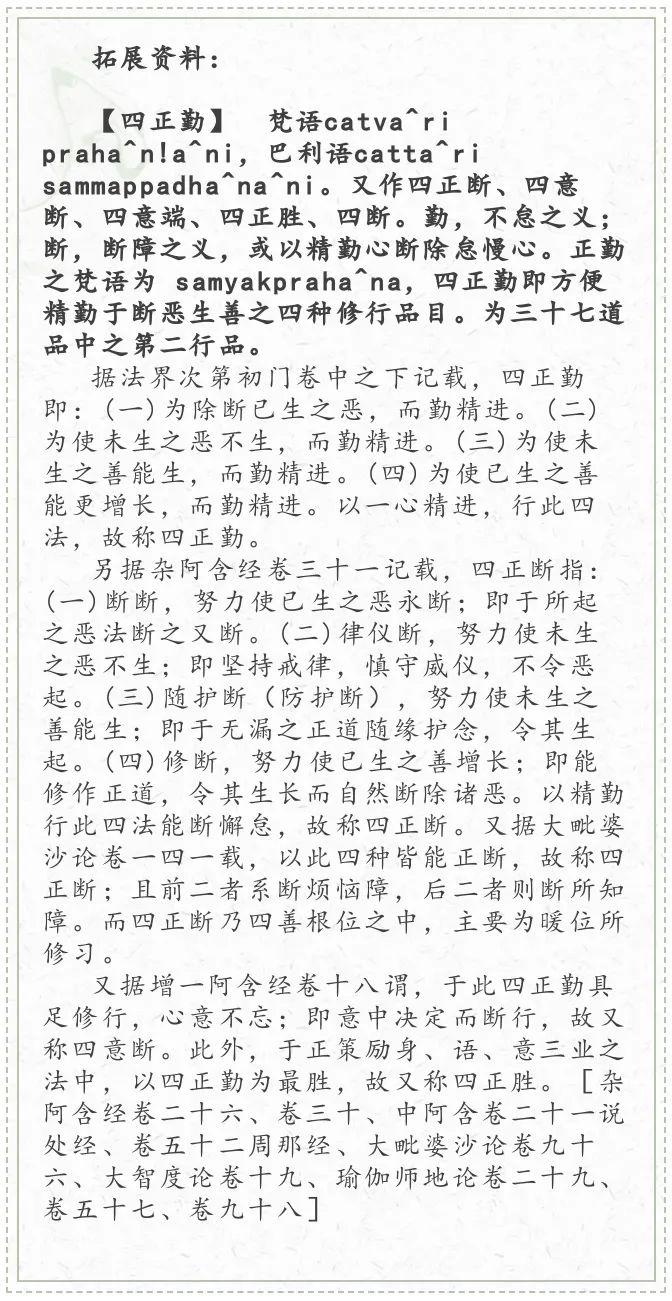 拓展资料：
【四正勤】 梵语catva^ri
praha^n!a^ni，巴利语catta^ri
sammappadha^na^ni。又作四正断、四意
断、四意端、四正胜、四断。勤，不怠之义；
断，断障之义，或以精勤心断除怠慢心。正勤
之梵语为 samyakpraha^na，四正勤即方便
精勤于断恶生善之四种修行品目。为三十七道
品中之第二行品。
据法界次第初门卷中之下记载，四正勤
即：(一)为除断已生之恶，而勤精进。(二)
为使未生之恶不生，而勤精进。(三)为使未
生之善能生，而勤精进。(四)为使已生之善
能更增长，而勤精进。以一心精进，行此四
法，故称四正勤。
另据杂阿含经卷三十一记载，四正断指：
(一)断断，努力使已生之恶永断；即于所起
之恶法断之又断。(二)律仪断，努力使未生
之恶不生；即坚持戒律，慎守威仪，不令恶
起。(三)随护断（防护断），努力使未生之
善能生；即于无漏之正道随缘护念，令其生
起。(四)修断，努力使已生之善增长；即能
修作正道，令其生长而自然断除诸恶。以精勤
行此四法能断懈怠，故称四正断。又据大毗婆
沙论卷一四一载，以此四种皆能正断，故称四
正断；且前二者系断烦恼障，后二者则断所知
障。而四正断乃四善根位之中，主要为暖位所
修习。
又据增一阿含经卷十八谓，于此四正勤具
足修行，心意不忘；即意中决定而断行，故又
称四意断。此外，于正策励身、语、意三业之
法中，以四正勤为最胜，故又称四正胜。［杂
阿含经卷二十六、卷三十、中阿含卷二十一说
处经、卷五十二周那经、大毗婆沙论卷九十
六、大智度论卷十九、瑜伽师地论卷二十九、
卷五十七、卷九十八］